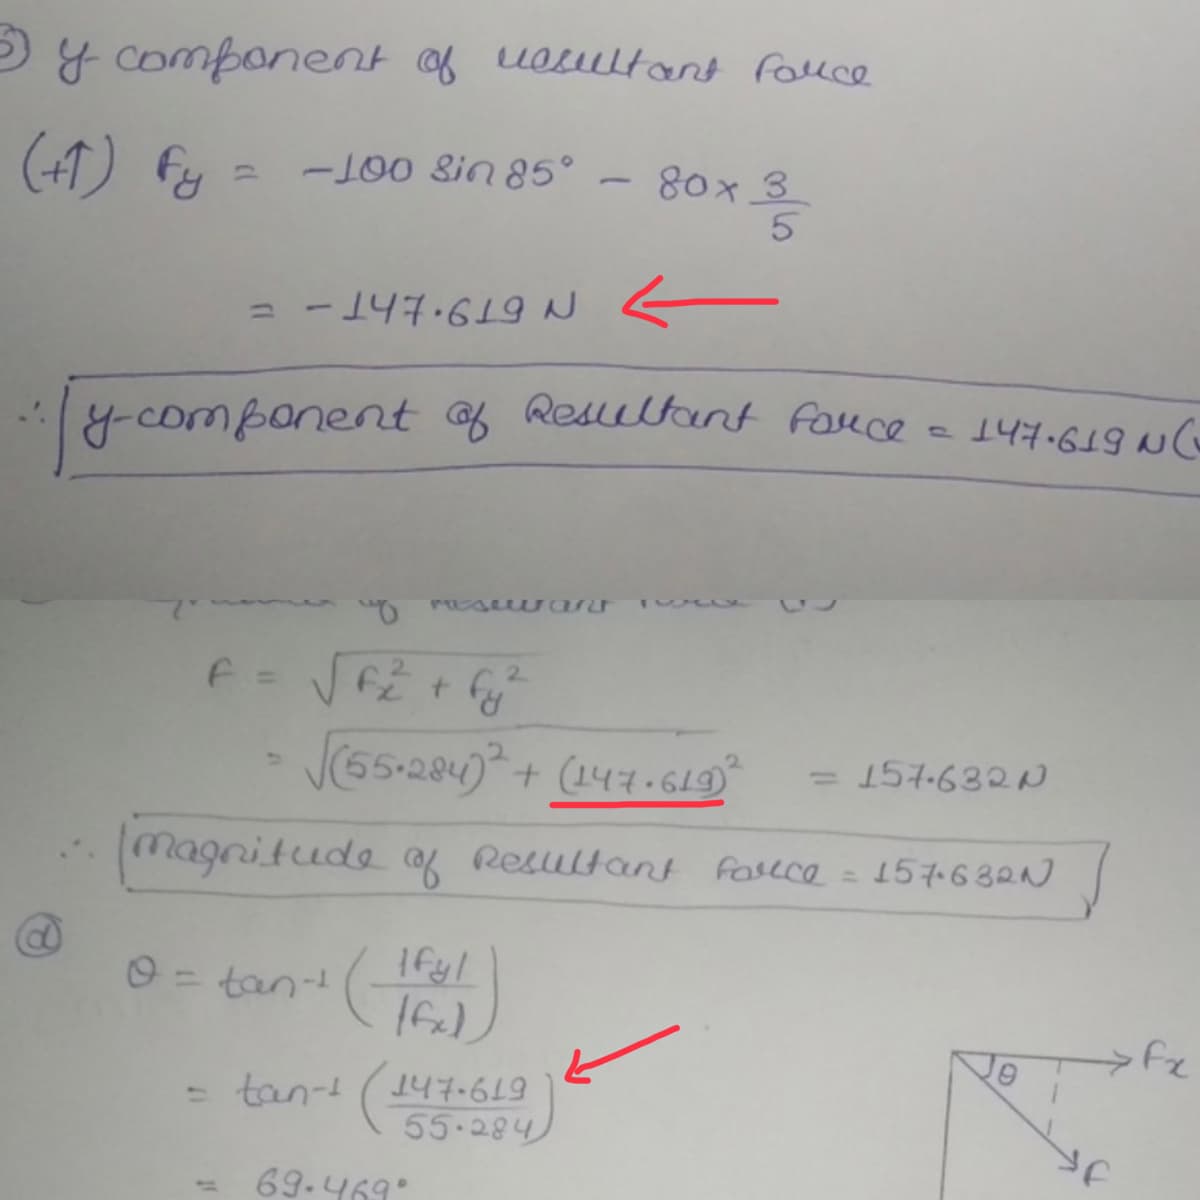 y-component of resultant force
(+↑) Fy = -100 sin 85° - 80 x 3/5
= -147.619 N
∴ y-component of Resultant force = 147.619 N (
of Resultant
F = √Fx² + Fy²
= √(55.284)² + (147.619)² = 157.632 N
∴ magnitude of Resultant force = 157.632 N
(d)
θ = tan-1 (|Fy| / |Fx|)
= tan-1 (147.619 / 55.284)
= 69.469°
θ Fx
F